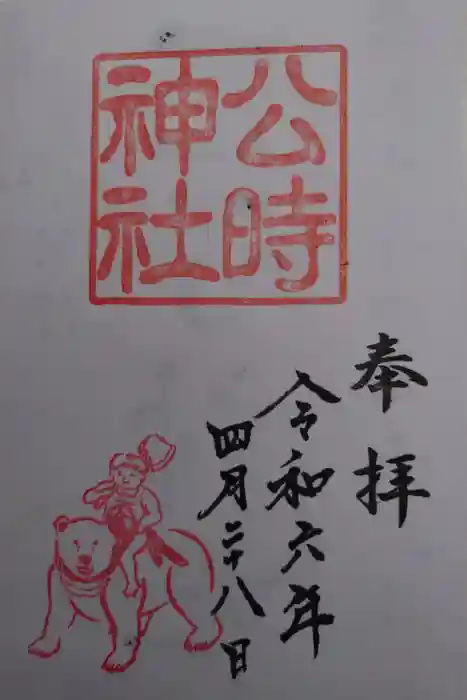 公時
神社
奉拝
令和六年
四月二十八日